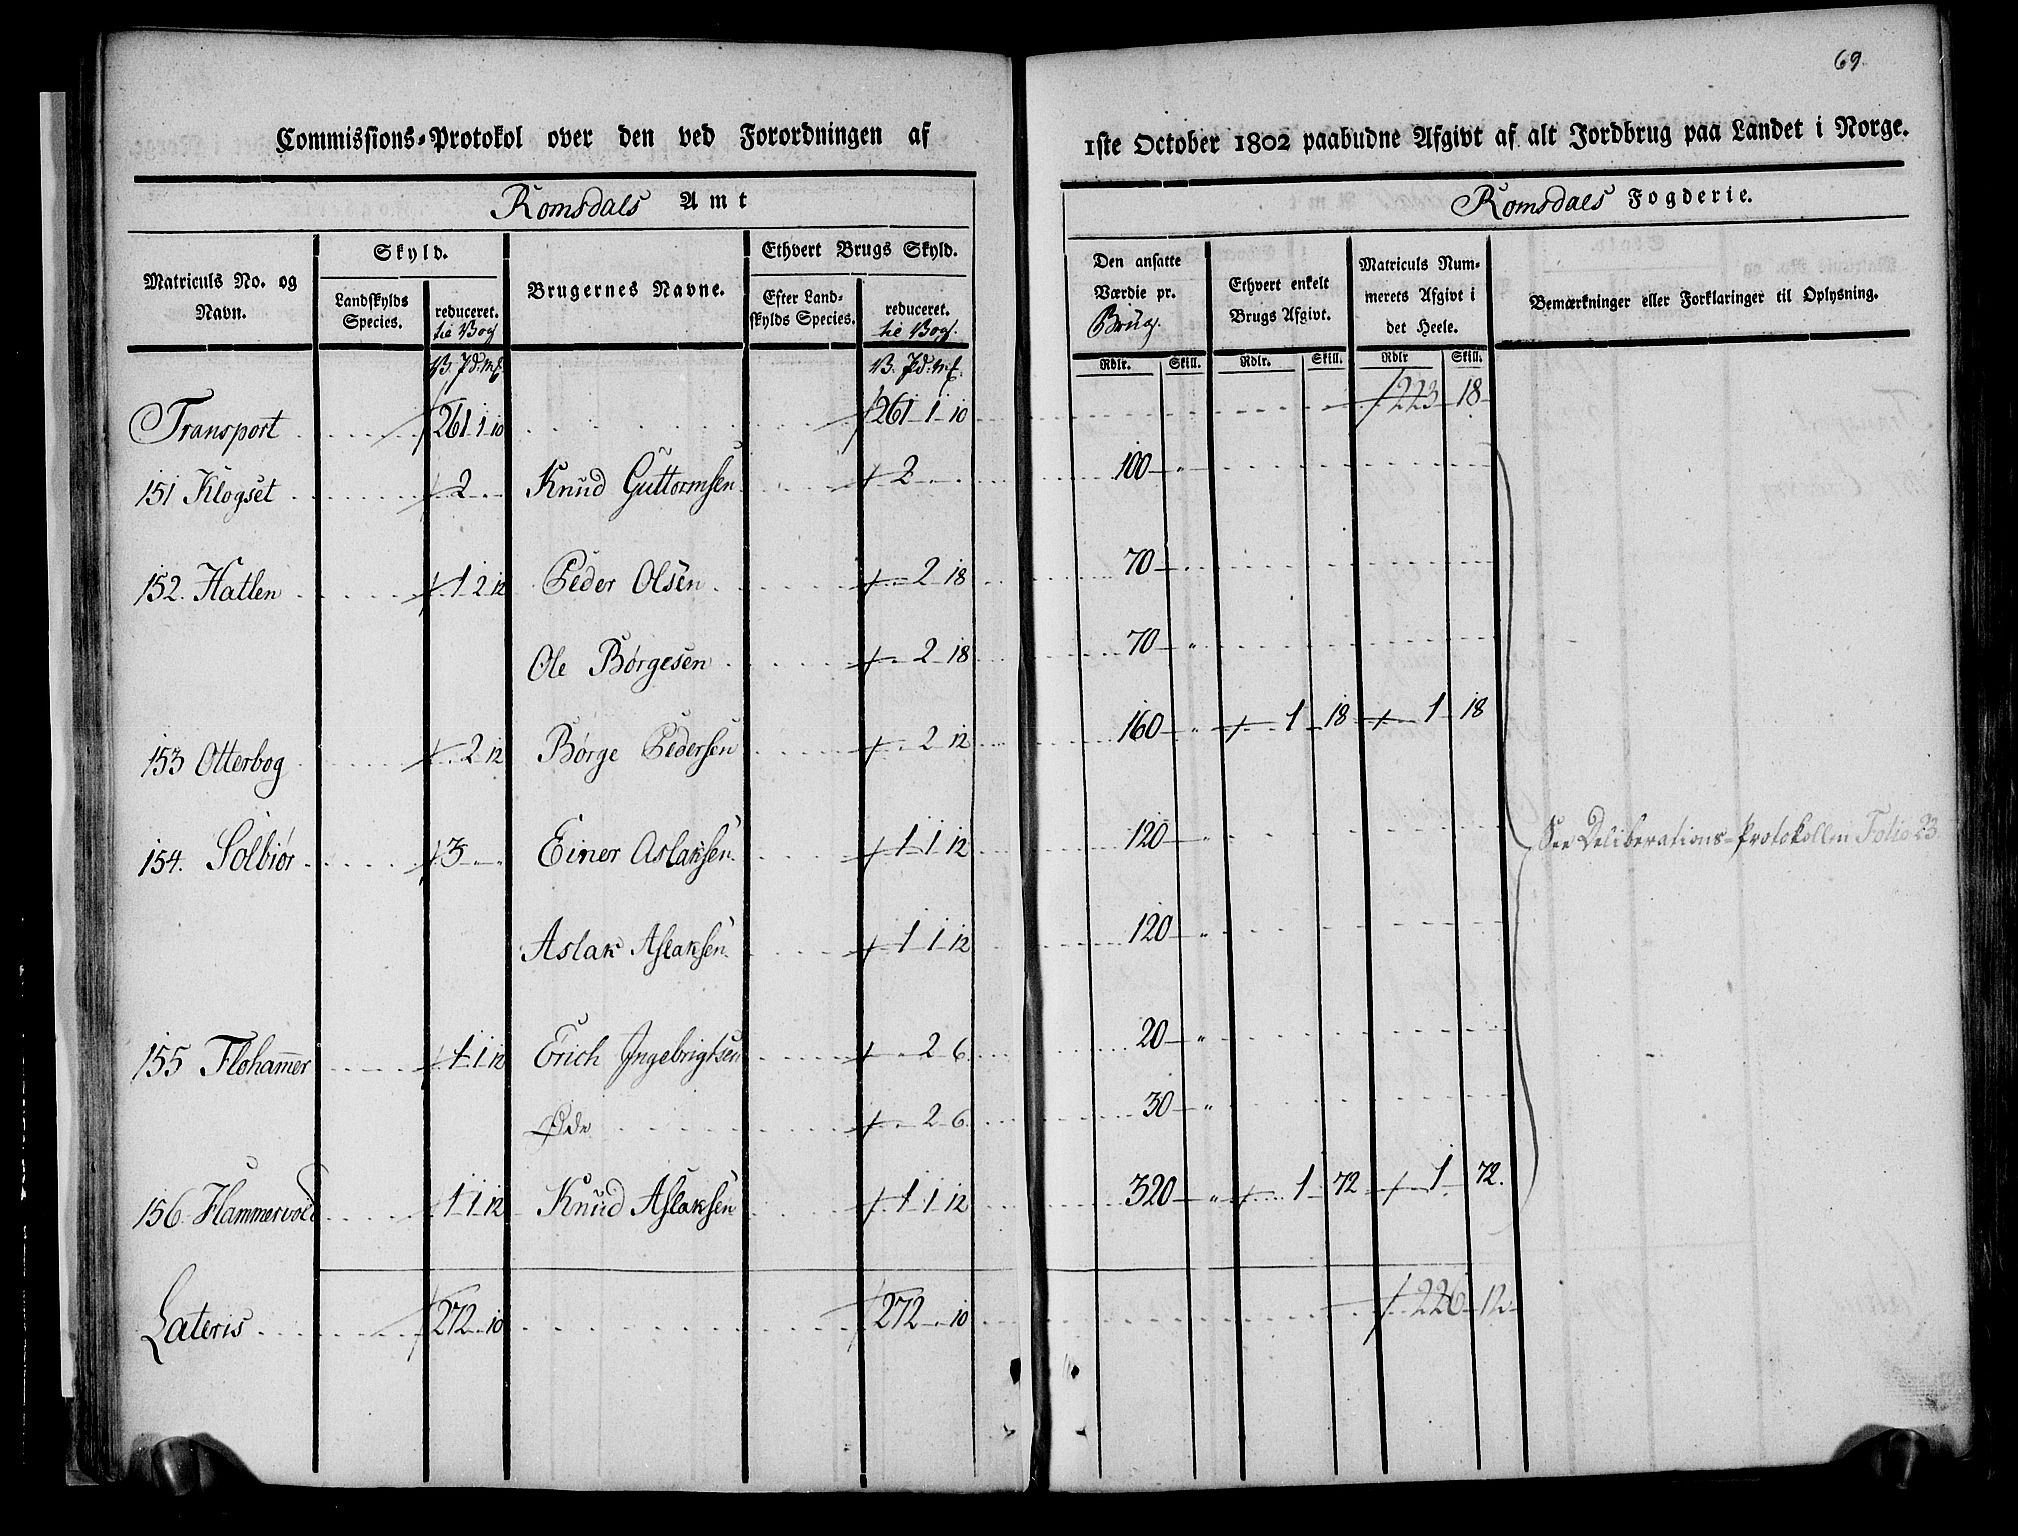 69.
Commissions-Protokol over den ved Forordningen af
1ste October 1802 paabudne Afgivt af alt Jordbrug paa Landet i Norge.
Romsdals Amt
Romsdals Fogderie.
Matriculs No. og Navn.
Skyld.
Landskylds Species.
reduceret.
Brugernes Navne.
Ethvert Brugs Skyld.
Efter Landskylds Species.
reduceret.
Den ansatte Værdie pr. Brug.
Ethvert enkelt Brugs Afgivt.
Matriculs Nummerets Afgivt i det Heele.
Bemærkninger eller Forklaringer til Oplysning.
Rdlr. Skill. Rdlr. Skill. Rdlr Skill.
Transport 261 1 10 261 1 10 223 18
151 Klogset 2 Knud Guttormsen 2 100 "
152. Hatlen 1 2 12 Peder Olsen 2 18 70 "
Ole Børgesen 2 18 70 "
153 Otterbog 2 12 Børge Pedersen 2 12 160 " 1 18 1 18
154. Solbiør 3 Einer Aslaksen 1 1 12 120 "
See Deliberations-Protokollen Folio 23
Aslak Aslaksen 1 1 12 120 "
155 Flohamer 1 1 12 Erich Ingebrigtsen 2 6 20 "
Øde 2 6 30 "
156 Hammervold 1 1 12 Knud Aslaksen 1 1 12 320 " 1 72 1 72.
Lateris 272 10 272 10 226 12